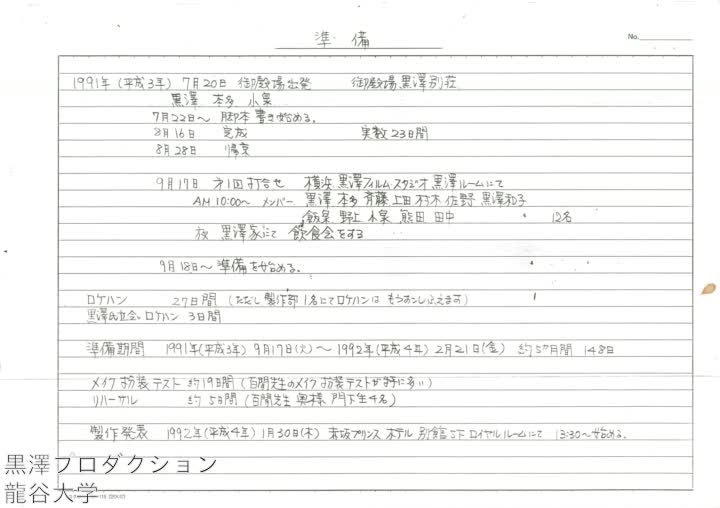 準備
No.
1991年(平成3年) 7月20日 御殿場出発 御殿場黒澤別荘
黒澤 本多 小泉
7月22日～ 脚本書き始める。
8月16日 完成 実数23日間
8月28日 帰京
9月17日 才1回打合せ 横浜黒澤フィルム・スタジオ黒澤ルームにて
AM 10:00～ メンバー 黒澤 本多 斉藤 上田 村木 佐野 黒澤和子
飯泉 野上 小泉 熊田 田中 12名
夜 黒澤家にて 飲食会をする
9月18日～準備を始める。
ロケハン 27日間 (ただし製作部1名にてロケハンは もう少しふえます)
黒澤氏立会・ロケハン 3日間
準備期間 1991年(平成3年) 9月17日(火)～1992年(平成4年) 2月21日(金) 約5ヶ月間 148日
メイク扮装テスト 約19日間 (百閒先生のメイク扮装テストが特に多い)
リハーサル 約5日間 (百閒先生 奥様 門下生4名)
製作発表 1992年(平成4年) 1月30日(木) 赤坂プリンスホテル 別館5F ロイヤルルームにて 13:30～始める。
黒澤プロダクション
龍谷大学